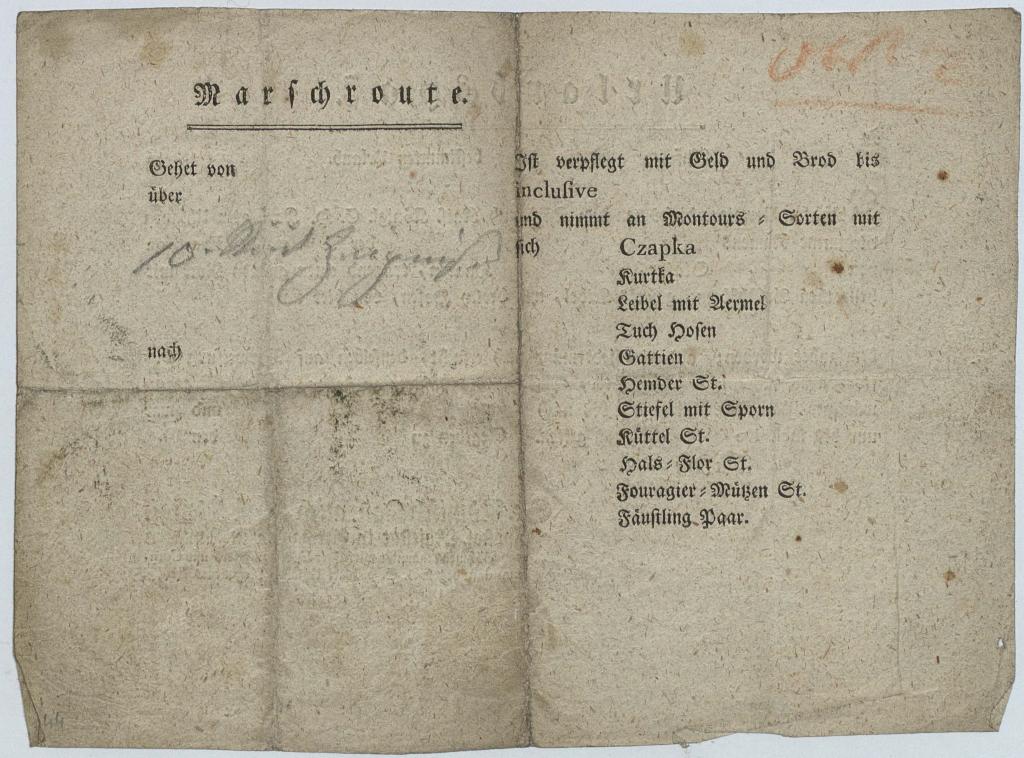 Marschroute.
Gehet von
über
nach
Ist verpflegt mit Geld und Brod bis
inclusive
und nimmt an Montours = Sorten mit
sich Czapka
Kurtka
Leibel mit Aermel
Tuch Hosen
Gattien
Hemder St.
Stiefel mit Sporn
Küttel St.
Hals=Flor St.
Fouragier=Mützen St.
Fäustling Paar.